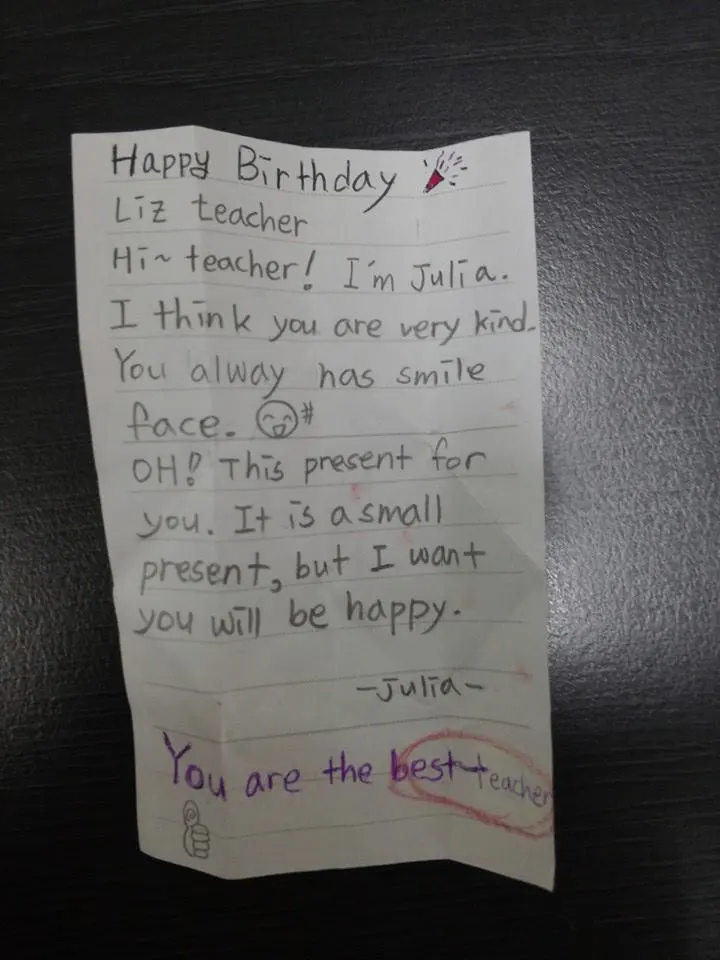 Happy Birthday
Liz teacher
Hi~ teacher! I'm Julia.
I think you are very kind.
You alway has smile
face. #
OH! This present for
you. It is a small
present, but I want
you will be happy.
-Julia-
You are the best teacher